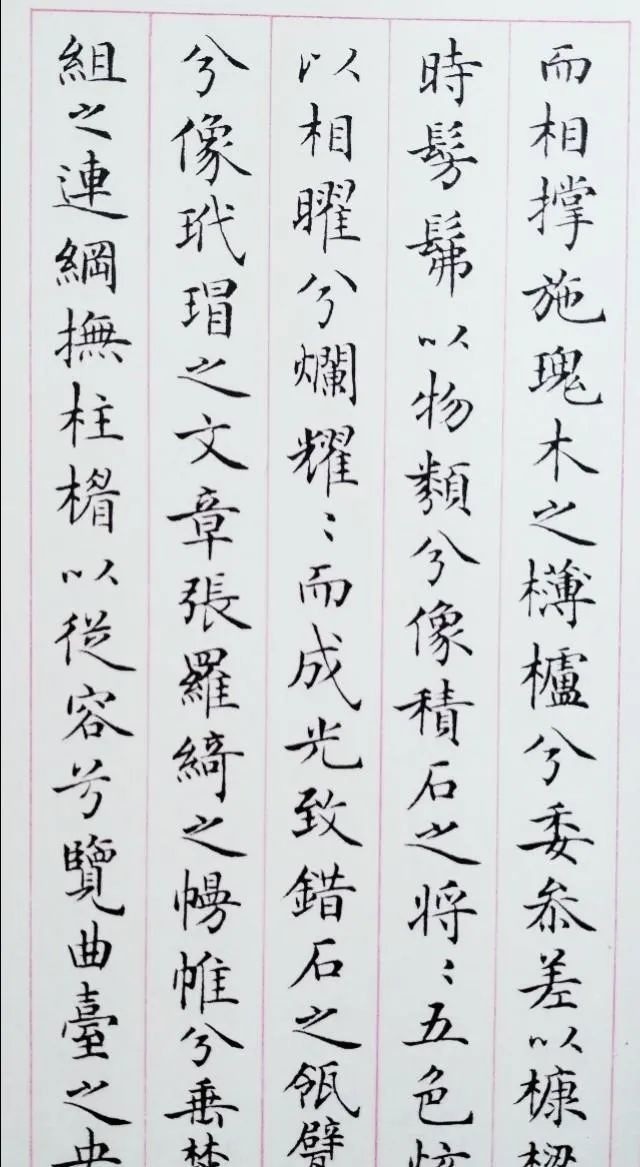 而相撐施瑰木之欂櫨兮委叅差以槺
時髣髴以物類兮像積石之将〻五色
以相曜兮爛耀〻而成光致錯石之瓴甓
兮像玳瑁之文章張羅綺之幔帷兮垂楚
組之連綱撫柱楣以從容兮覽曲臺之央